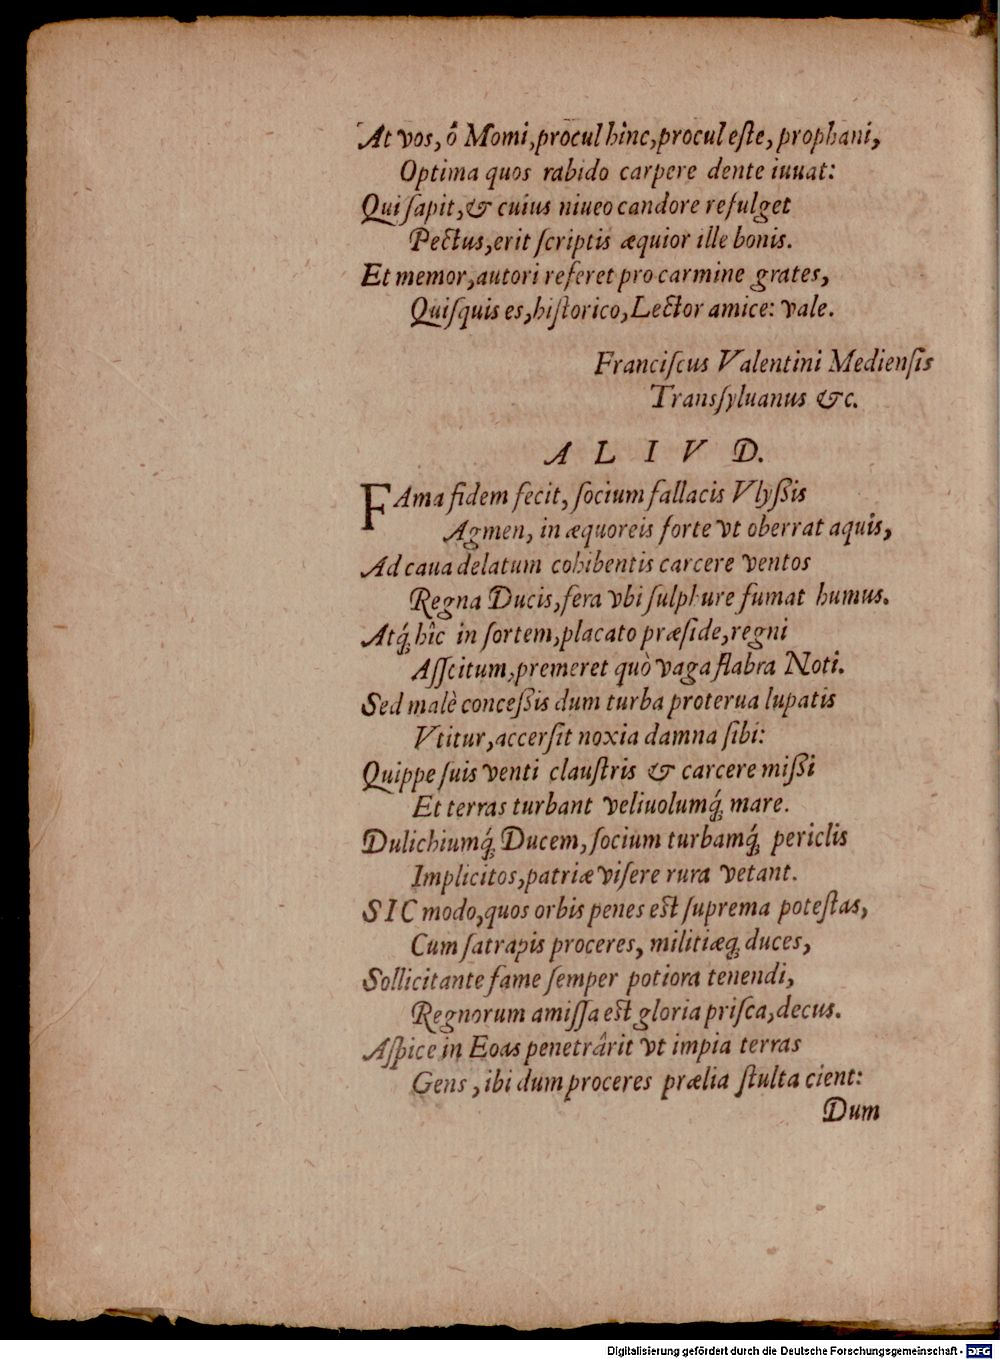 At vos, ô Momi, procul hinc, procul eſte, prophani,
Optima quos rabido carpere dente iuuat:
Qui ſapit, & cuius niueo candore refulget
Pectus, erit ſcriptis æquior ille bonis.
Et memor, autori referet pro carmine grates,
Quiſquis es, hiſtorico, Lector amice: vale.
Franciſcus Valentini Medienſis
Transſyluanus &c.
ALIVD.
FAma fidem fecit, ſocium fallacis Vlyßis
Agmen, in æquoreis forte vt oberrat aquis,
Ad caua delatum cohibentis carcere ventos
Regna Ducis, fera vbi ſulphure fumat humus.
Atq́; hîc in ſortem, placato præſide, regni
Aſſcitum, premeret quò vaga flabra Noti.
Sed malè conceßis dum turba proterua lupatis
Vtitur, accerſit noxia damna ſibi:
Quippe ſuis venti clauſtris & carcere mißi
Et terras turbant veliuolumq́; mare.
Dulichiumq́; Ducem, ſocium turbamq́; periclis
Implicitos, patriæ viſere rura vetant.
SIC modo, quos orbis penes eſt ſuprema poteſtas,
Cum ſatrapis proceres, militiæq; duces,
Sollicitante fame ſemper potiora tenendi,
Regnorum amiſſa eſt gloria priſca, decus.
Aſpice in Eoas penetrârit vt impia terras
Gens, ibi dum proceres prælia ſtulta cient:
Dum
Digitalisierung gefördert durch die Deutsche Forschungsgemeinschaft - DFG